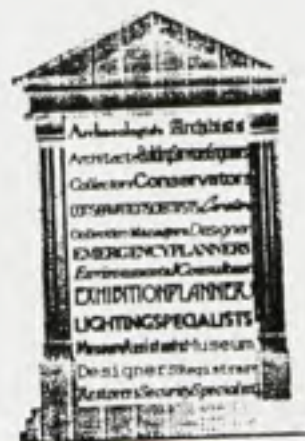 Archaeologists Archivists
Architects Building Services Engineers
Collectors Conservators
CONSERVATION SCIENTISTS Curators
Collection Managers Designer
EMERGENCY PLANNERS
Environmental Consultant
EXHIBITION PLANNERS
LIGHTING SPECIALISTS
Museum Assistants Museum
Designers Registrars
Restorers Security Specialist